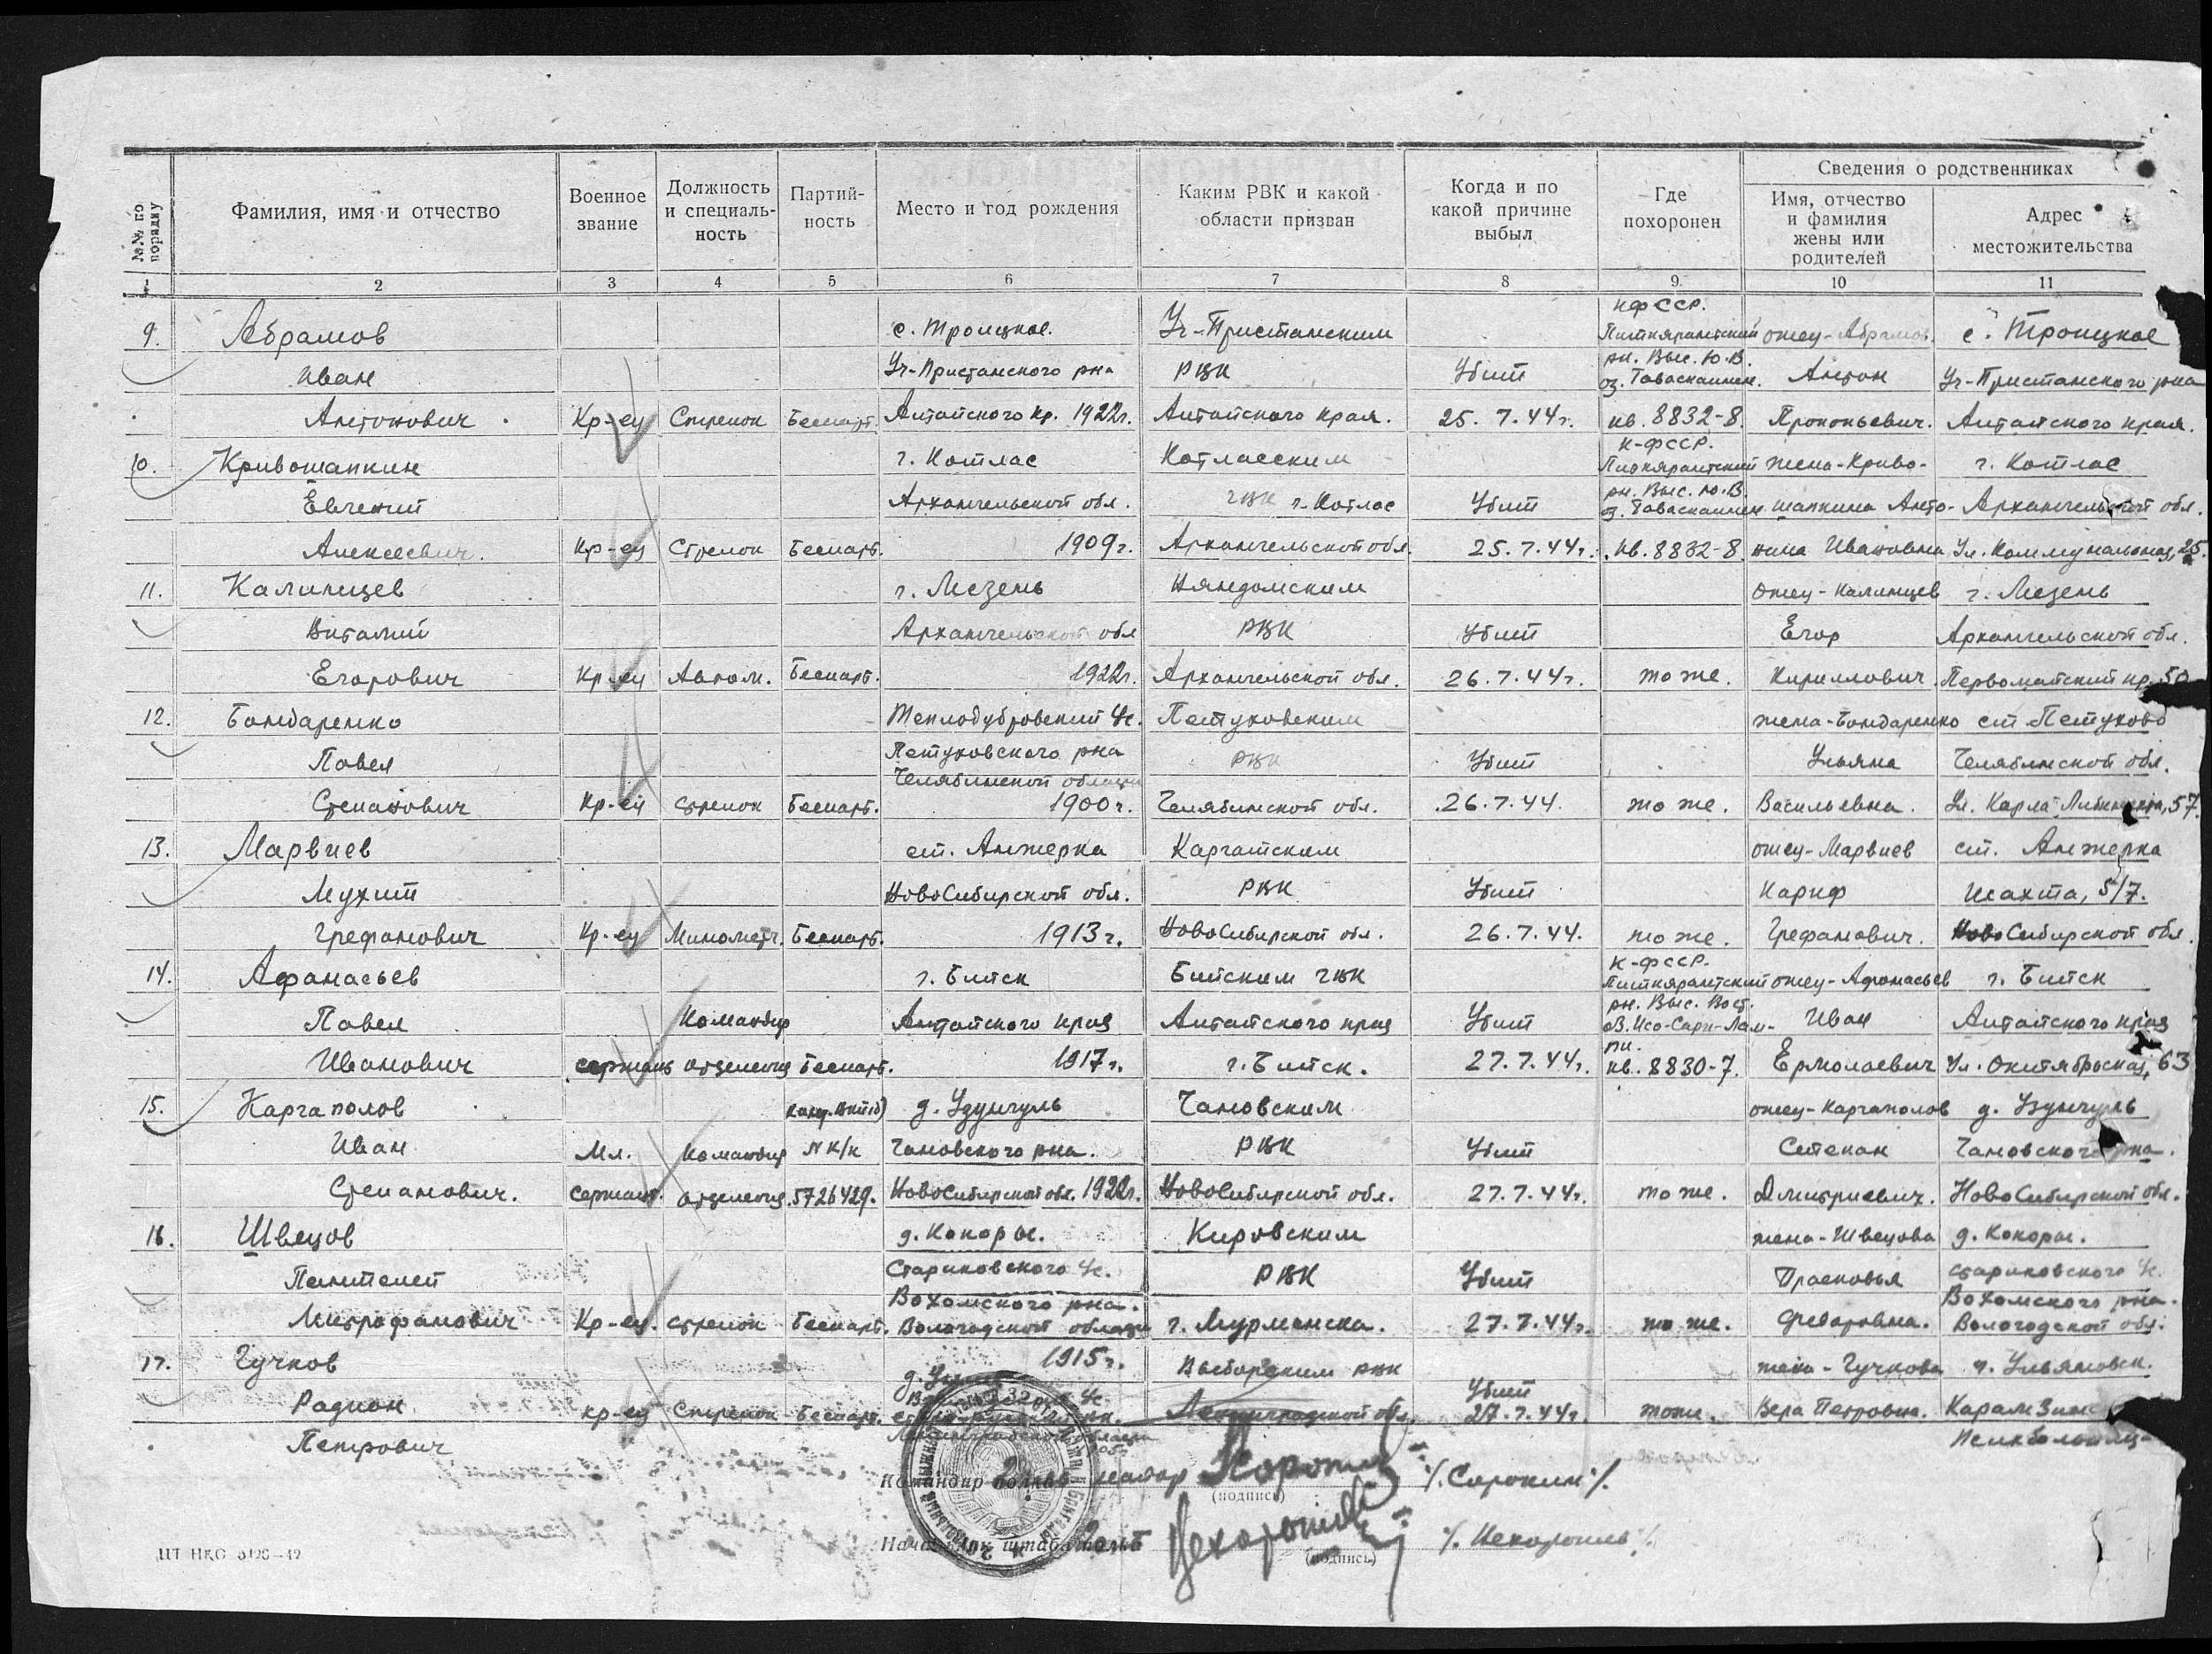 №№ по порядку
Фамилия, имя и отчество
Военное звание
Должность и специаль-ность
Партий-ность
Место и год рождения
Каким РВК и какой области призван
Когда и по какой причине выбыл
Где похоронен
Сведения о родственниках
Имя, отчество и фамилия жены или родителей
Адрес местожительства
1 2 3 4 5 6 7 8 9. 10 11
К-ФССР.
9. Абрамов с. Троицкое. Уч-Пристанским Питкярантский отец-Абрамов. с. Троицкое
Иван Уч-Пристанского р-на РВК Убит рн. Выс. Ю.В. оз. Таваскаинен. Антон Уч-Пристанского р-на
Антонович Кр-ец Стрелок Беспарт. Алтайского кр. 1922г. Алтайского края. 25.7.44г. кв. 8832-8. Прокопьевич. Алтайского края.
К-ФССР.
10. Кривошапкин г. Котлас Котласским Питкярантский жена-Криво- г. Котлас
Евгений Архангельской обл. ГВК г. Котлас Убит рн. Выс. Ю.В. оз. Таваскаинен шапкина Анто- Архангельской обл.
Алексеевич. Кр-ец Стрелок Беспарт. 1909г. Архангельской обл. 25.7.44г. кв. 8832-8 нина Ивановна Ул. Коммунальная, 25.
11. Калинцев г. Мезень Няндомским отец-Калинцев г. Мезень
Виталий Архангельской обл РВК Убит Егор Архангельской обл.
Егорович Кр-ец Автом. Беспарт. 1922г. Архангельской обл. 26.7.44г. то же. Кириллович. Первомайский пр. 50
12. Бондаренко Теплодубровский Чс. Петуховским жена-Бондаренко ст. Петухово
Павел Петуховского р-на РВК Убит Ульяна Челябинской обл.
Челябинской области
Степанович Кр-ец стрелок Беспарт. 1900г. Челябинской обл. 26.7.44. то же. Васильевна. Ул. Карла-Либкнехта, 57.
13. Марвиев ст. Анжерка Каргатским отец-Марвиев ст. Анжерка
Мухит НовоСибирской обл. РВК Убит Кариф Шахта, 5/7.
Грефанович Кр-ец Минометч. Беспарт. 1913г. НовоСибирской обл. 26.7.44. то же. Грефанович. НовоСибирской обл.
К-ФССР.
14. Афанасьев г. Бийск Бийским ГВК Питкярантский отец-Афанасьев г. Бийск
Павел Командир Алтайского края Алтайского края Убит рн. Выс. Вост. оз. Исо-Сари-Лам- Иван Алтайского края
пи.
Иванович сержант отделения Беспарт. 1917г. г. Бийск. 27.7.44г. кв. 8830-7. Ермолаевич Ул. Октябрьская, 63
15. Каргаполов канд. ВКП(б) д. Узунгуль Чановским отец-Каргаполов д. Узунгуль
Иван Мл. Командир № к/к Чановского р-на. РВК Убит Степан Чановского р-на.
Степанович. Сержант. отделения 5726429. НовоСибирской обл. 1922г. НовоСибирской обл. 27.7.44г. то же. Дмитриевич. НовоСибирской обл.
16. Швецов д. Коноры. Кировским жена-Швецова д. Коноры.
Пантелей Стариковского Чс. РВК Убит Прасковья Стариковского Чс.
Вохомского р-на. Вохомского р-на.
Митрофанович Кр-ец. стрелок Беспарт. Вологодской области г. Мурманска. 27.7.44г. то же. Федоровна. Вологодской обл.
17. Гучков 1915г. Выборским РВК жена-Гучкова г. Ульяновск.
Родион Кр-ец Стрелок Беспарт. Ленинградской обл. Убит 27.7.44г. то же. Вера Петровна.
Петрович Ленинградской области
Командир полка майор (подпись) /. Сорокин /.
Начальник штаба (подпись) /. Нехорошев /.
ЦТ НКО